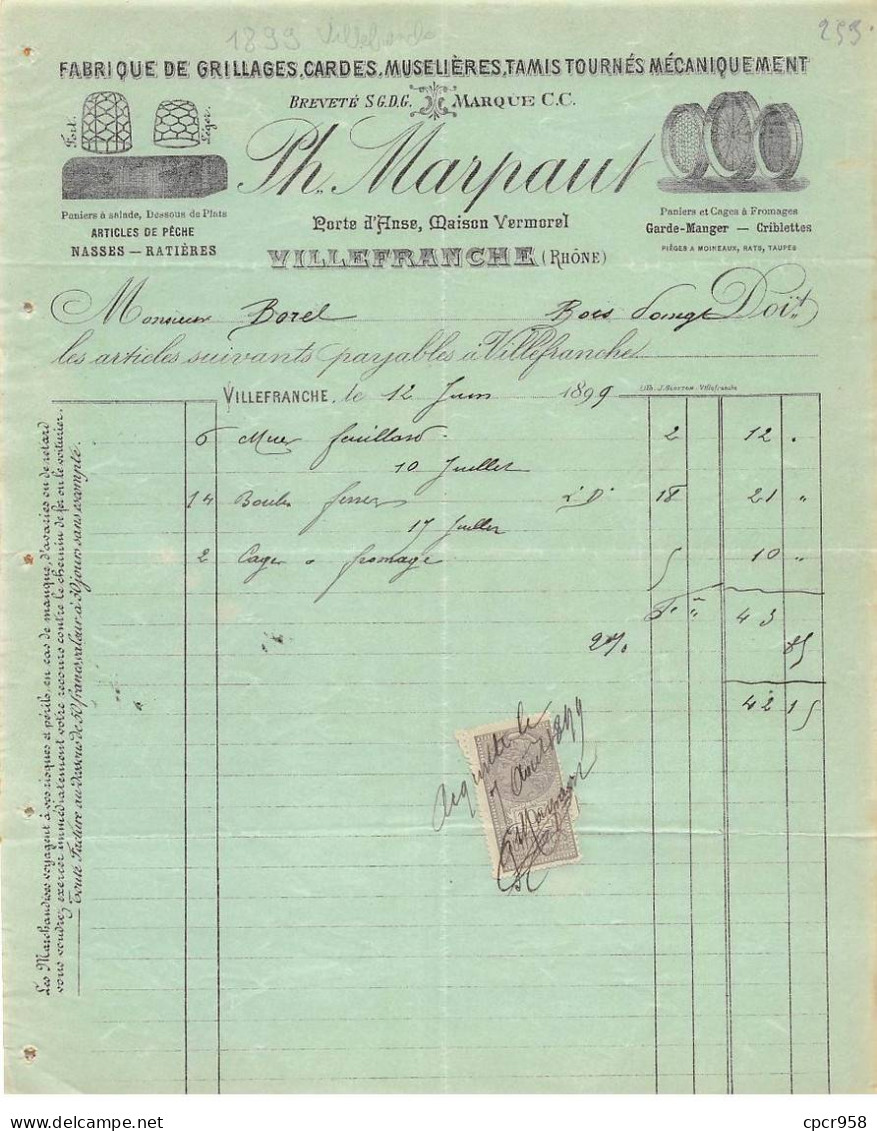 1899 Villefranche
259.
FABRIQUE DE GRILLAGES, CARDES, MUSELIÈRES, TAMIS TOURNÉS MÉCANIQUEMENT
BREVETÉ S.G.D.G. MARQUE C.C.
Fort. Léger.
Ph. Marpaut
Paniers à salade, Dessous de Plats
ARTICLES DE PÊCHE
NASSES — RATIÈRES
Porte d'Anse, Maison Vermorel
VILLEFRANCHE (RHÔNE)
Paniers et Cages à Fromages
Garde-Manger — Criblettes
PIÈGES A MOINEAUX, RATS, TAUPES
Monsieur Borel Bois Doingt Doit
les articles suivants payables à Villefranche
Villefranche
VILLEFRANCHE, le 12 Juin 1899
6 Mues feuillard 2 12 "
10 Juillet
14 Boules 18 21 "
17 Juillet
2 Cages a fromage 5 10 "
43
2% 85
42 15
Acquitté le
Août 1899
Les Marchandises voyagent à vos risques et périls, en cas de manque, d'avaries ou de retard
vous voudrez exercer immédiatement votre recours contre le chemin de fer ou le voiturier.
Toute Facture au dessous de 50 francs valeur à 30 jours sans escompte.
cpcr958